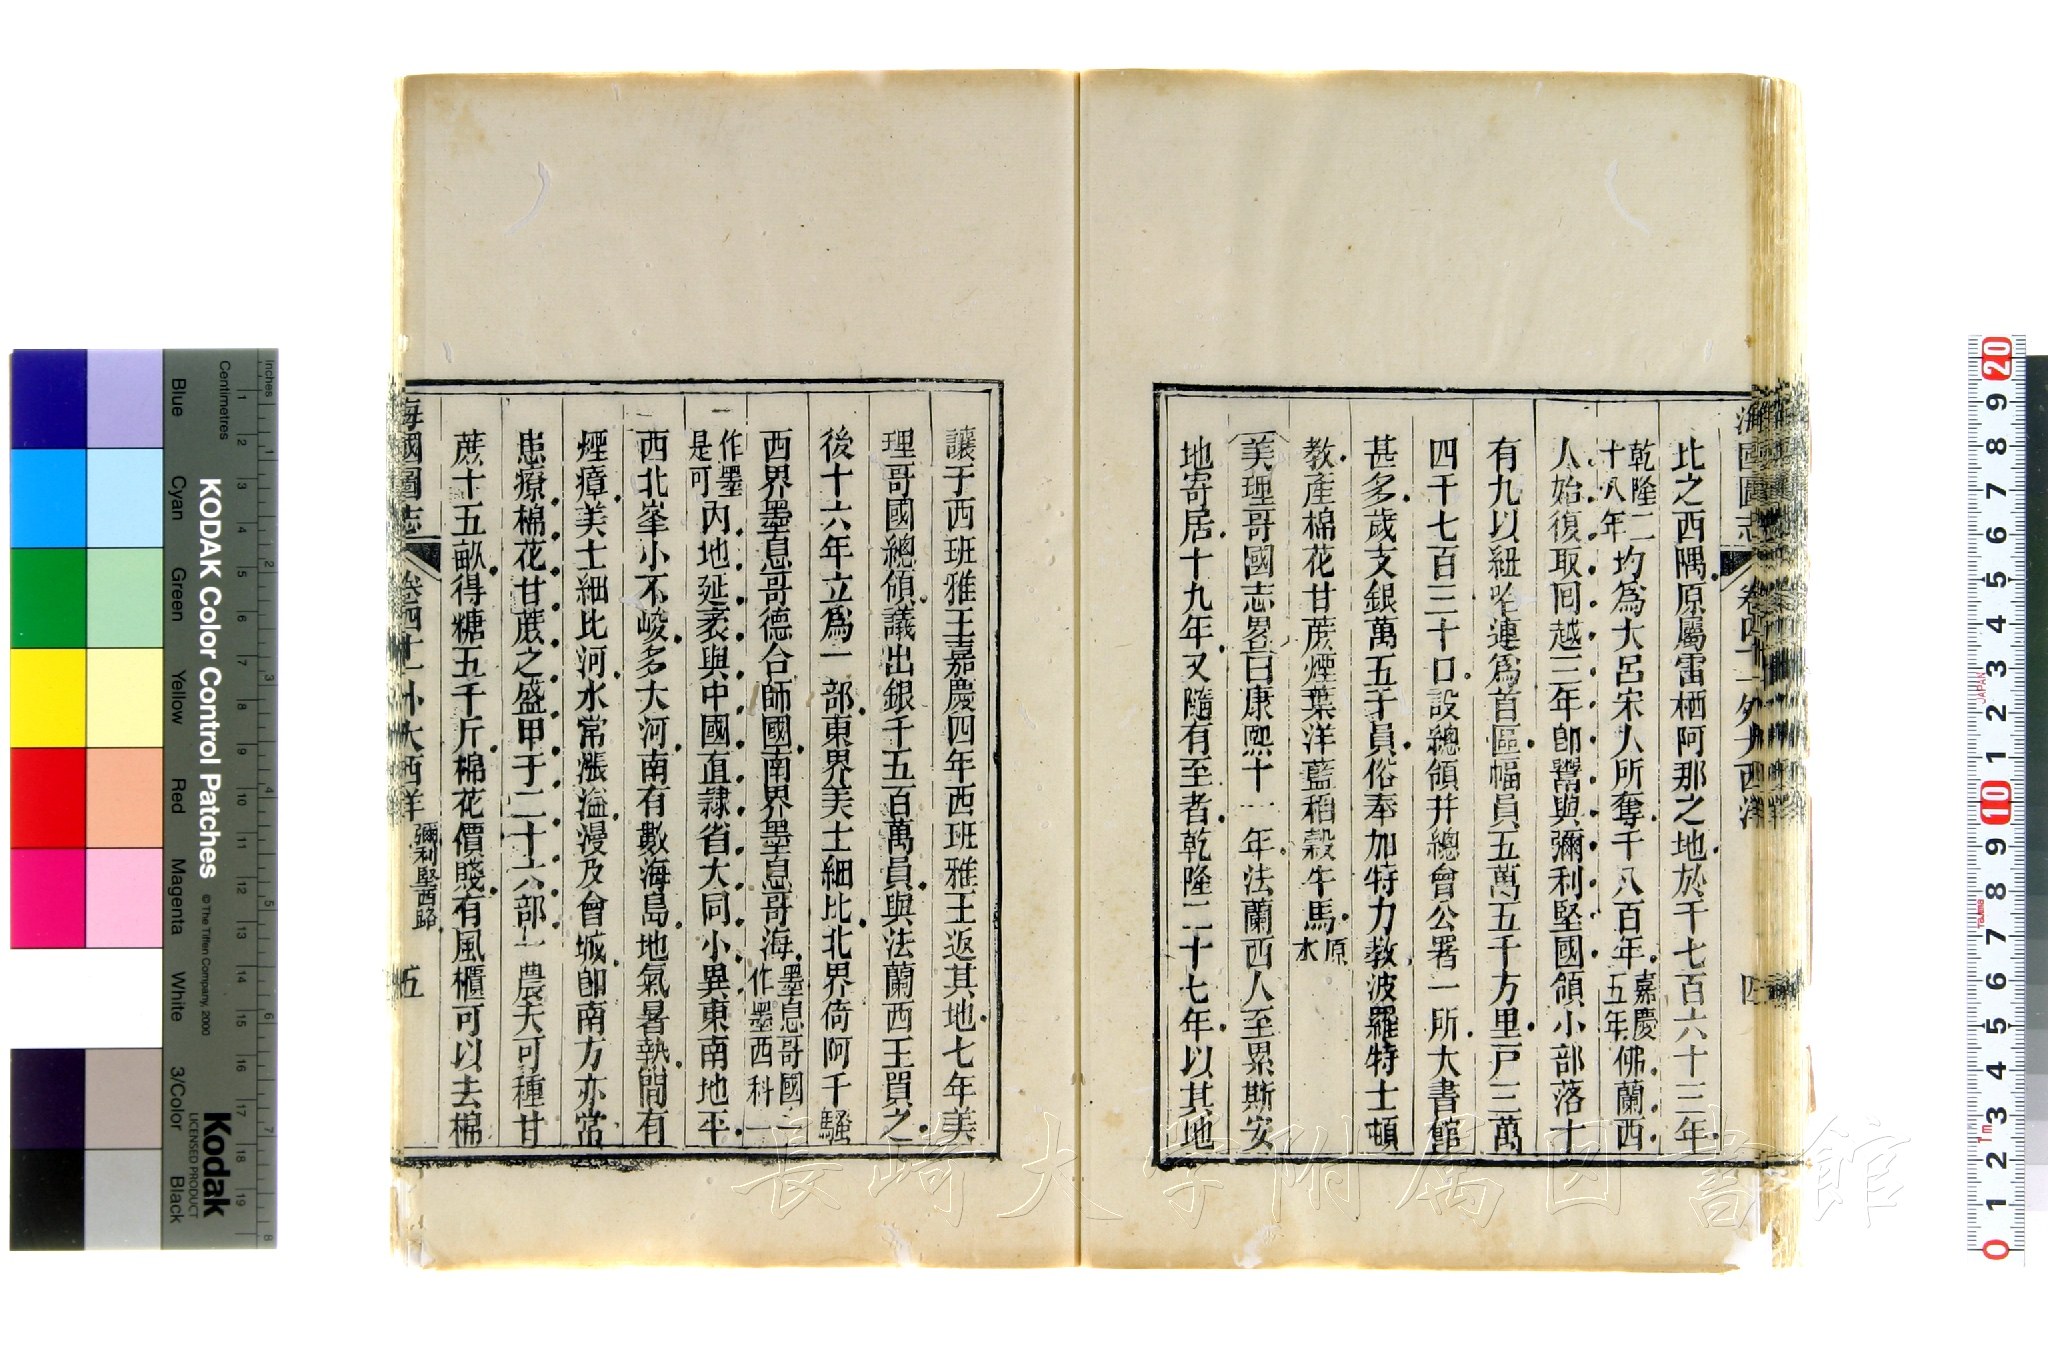 海國圖志 卷四十一 外大西洋 四
比之西隅原屬雷栖阿那之地於千七百六十三年
乾隆二十八年均爲大呂宋人所奪千八百年嘉慶五年佛蘭西
人始復取回越三年卽鬻與彌利堅國領小部落十
有九以紐哈連爲首區幅員五萬五千方里戸三萬
四千七百三十口設總領并總會公署一所大書館
甚多歲支銀萬五千員俗奉加特力教波羅特士頓
教產棉花甘蔗煙葉洋藍稻穀牛馬原本
美理哥國志畧曰康熙十一年法蘭西人至累斯安
地寄居十九年又隨有至者乾隆二十七年以其地
讓于西班雅王嘉慶四年西班雅王返其地七年美
理哥國總領議出銀千五百萬員與法蘭西王買之
後十六年立爲一部東界美士細比北界倚阿千騷
西界墨息哥德合師國南界墨息哥海墨息哥國一作墨西科一
作墨是可內地延袤與中國直隸省大同小異東南地平
西北峯小不峻多大河南有數海島地氣暑熱間有
煙瘴美士細比河水常漲溢漫及會城卽南方亦常
患療棉花甘蔗之盛甲于二十六部一農夫可種甘
蔗十五畝得糖五千斤棉花價賤有風櫃可以去棉
海國圖志 卷四十一 外大西洋 彌利堅西路 五
長崎大学附属図書館
KODAK Color Control Patches
© The Tiffen Company, 2000
Kodak
LICENSED PRODUCT
Inches
Centimetres
Blue
Cyan
Green
Yellow
Red
Magenta
White
3/Color
Black
JAPAN